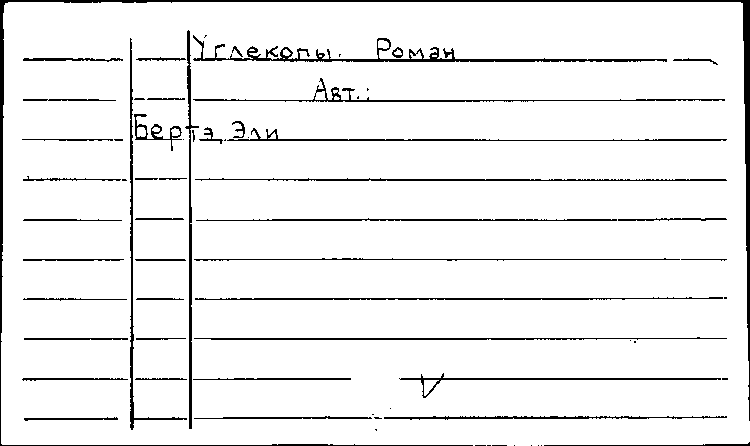 Углекопы. Роман
Авт.:
Бертэ, Эли